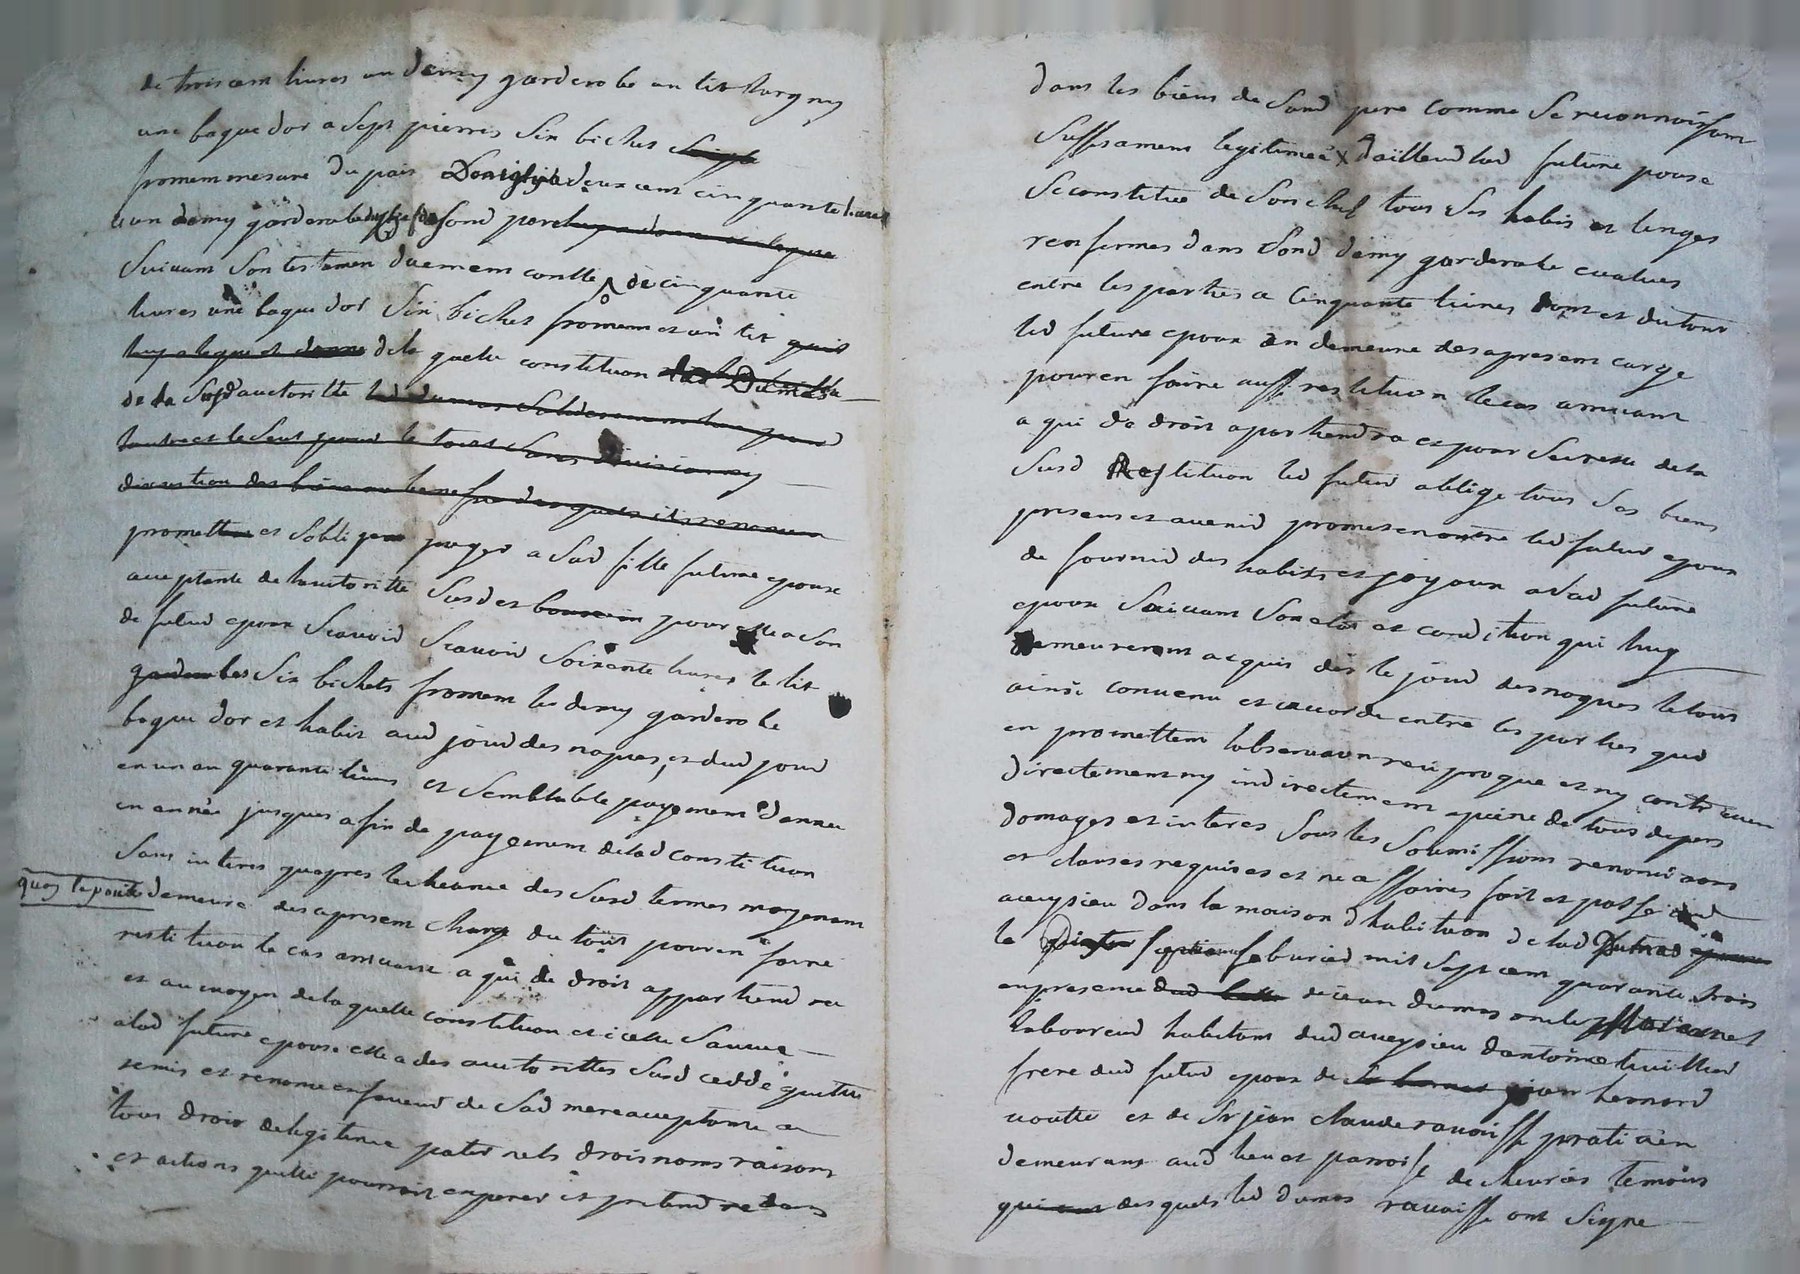 de troiscent livres un demy garderobe un lit largny
une bague dor a sept pierres six bichet
froment mesure du pais deux cent cinquante livres
un demy garderobe sond pere
suivant son testament duement conlle de cinquante
livres une bague dor six bichet froment et un lit quil
luy a legue et donne de la quelle constitution
de la susd auctoritté
lautre et le seul pour le tout sans division ny
discution des biens au benefice desquels ils renoncent
promettent et soblige payer a sad fille future epouse
acceptante de lautoritté susd et pour elle a son
dt futur epoux scavoir scavoir soixante livres le lit
six bichets froment led demy garderobe
bague dor et habit aud jour des nopces, et dud jour
en un an quarante livres et semblable payement dannée
en année jusques a fin de payement de lad constitution
sans interes quapres lecheance des susd termes moyenant
quoy lepoux demeure des apresent charge du tout pour en faire
restitution le cas arrivant a qui de droit appartiendra
et au moyen de laquelle constitution et icelle sauve
alad future epouse elle a des auctorittes susd ceddé quitté
remis et renoncé en faveur de sad mere acceptante a
tous droit de legitime paternels droits noms raisons
et actions quelle pourroit esperer et pretendre dans
dans les biens de sond pere comme se reconnoissant
suffisament legitimée dailleurs lad future epouse
se constitue de son chef tous ses habis et linges
renfermes dans sond demy garderobe evalues
entre les parties a cinquante livres dont et du tout
led future epoux en demeure des apresent charge
pour en faire aussy restitution le cas arrivant
a qui de droit apartiendra et pour seurette de la
susd restitution led futur oblige tous ses biens
presens et avenir promet en outre led futur epoux
de fournir des habits et joyaux a sad future
epoux suivant son etat et condition qui luy
demeureront acquis dès le jour des nopces le tout
ainsi convenu et accordé entre les parties qui
en promettent lobservation reciproque et ny contrevenir
directement ny indirectement a peine de tous depens
domages et interes sous les soumissions renonciations
et clauses requises et necessaires fait et passe
aveysieu dans la maison dhabitation de lad
le feburier mil sept cent quarante trois
en presence de jean dumas oncle
laboureur habitant dud aveysieu dantoine tuillier
frere dud futur epoux de jean leonard
voutte et de sr jean claude ravoisse praticien
demeurant aud lieu et parroisse de temoins
desquels led dumas ravoisse ont signe